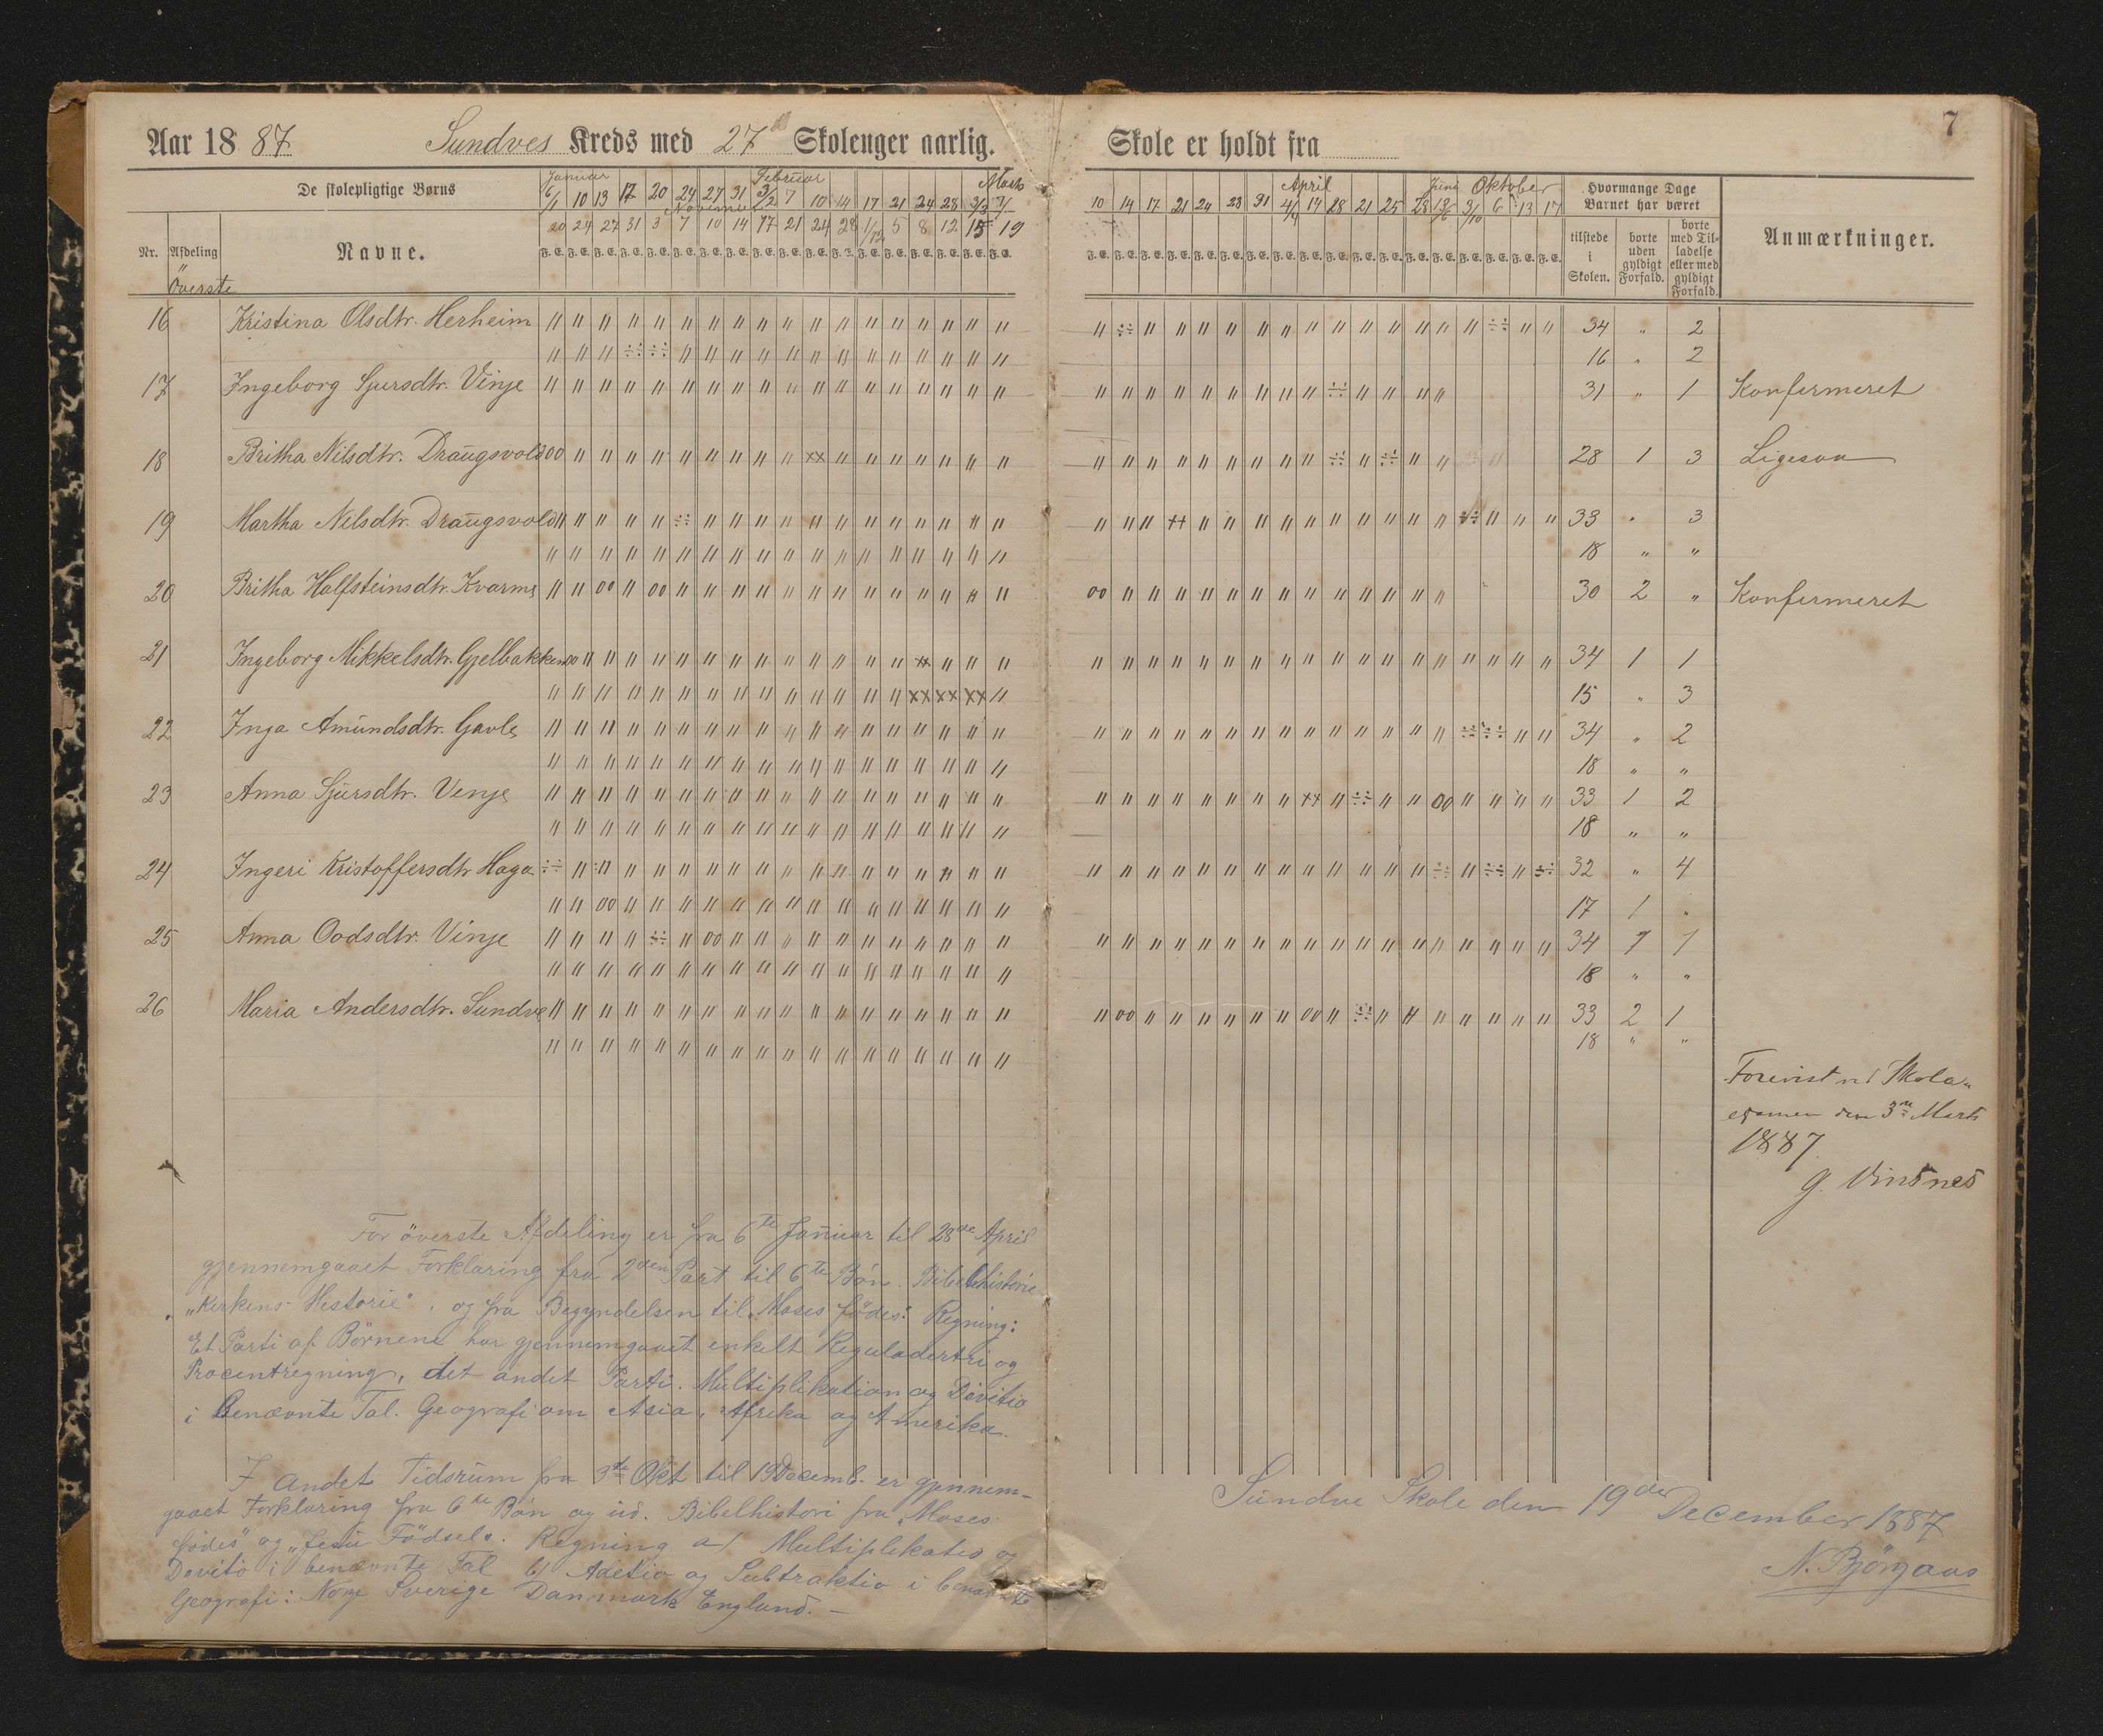 7
Aar 1887 Sundves Kreds med 27 Skolenger aarlig. Skole er holdt fra
De skolepligtige Børns
Januar Februar Marts April Juni Oktober
6/1 10 13 17 20 24 27 31 3/2 7 10 14 17 21 24 28 3/3 7/
10 14 17 21 24 28 31 4/4 14 28 21 25 28 13/6 3/10 6 13 17
Novemb
20 24 27 31 3 7 10 14 17 21 24 28 1/12 5 8 12 15 19
Hvormange Dage Barnet har været
Nr. Afdeling Navne. F. E.
tilstede i Skolen. borte uden gyldigt Forfald. borte med Tilladelse eller med gyldigt Forfald. Anmærkninger.
överste
16 Kristina Olsdtr. Herheim 34 " 2
16 " 2
17 Ingeborg Sjursdtr. Vinje 31 " 1 Konfirmeret
18 Britha Nilsdtr. Draugsvold 28 1 3 Ligesaa
19 Martha Nilsdtr. Draugsvold 33 " 3
18 " "
20 Britha Halfsteinsdtr. Kvarme 30 2 " Konfirmeret
21 Ingeborg Mikkelsdtr. Gjelbakken 34 1 1
15 " 3
22 Inga Amundsdtr. Gavle 34 " 2
18 " "
23 Anna Sjursdtr. Vinje 33 1 2
18 " "
24 Ingeri Kristoffersdtr Haga 32 " 4
17 1 "
25 Anna Oddsdtr. Vinje 34 1 1
18 " "
26 Maria Andersdtr. Sundve 33 2 1
18 " "
Forevist ved Skole-
examen den 3die Marts
1887
G. Vinsnes
For överste Afdeling er fra 6te Januar til 28de April
gjennemgaaet Forklaring fra 2den Part til 6te Bön. Bibelhistorie
"Kirkens Historie", og fra Begyndelsen til "Moses födes". Regning:
Et Parti af Börnene har gjennemgaaet enkelt Reguladetri og
Procentregning, det andet Parti. Multiplikation og Divitio
i benævnte Tal. Geografi om Asia, Afrika og Amerika.
I andet Tidsrum fra 3de Okt til 19 Decemb. er gjennem-
gaaet Forklaring fra 6te Bön og ud. Bibelhistori fra "Moses
födes" og "Jesu Födsel". Regning a) Multiplikatio og
Devitio i benævnte Tal b) Adetio og Subtraktio i benævnte
Geografi: Norge Sverige Danmark England. –
Sundve Skole den 19de December 1887
N. Björgaas